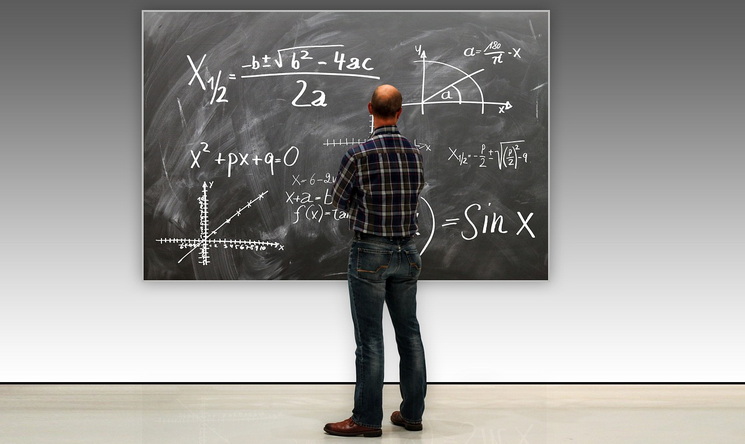 X1/2 = -b±√b²-4ac / 2a
y
a = 180/π · x
a
x
x
x² + px + q = 0
X1/2 = -p/2 ± √(p/2)²-q
X-6-2
y
X+a-b
f(x)=
) = Sin X
x